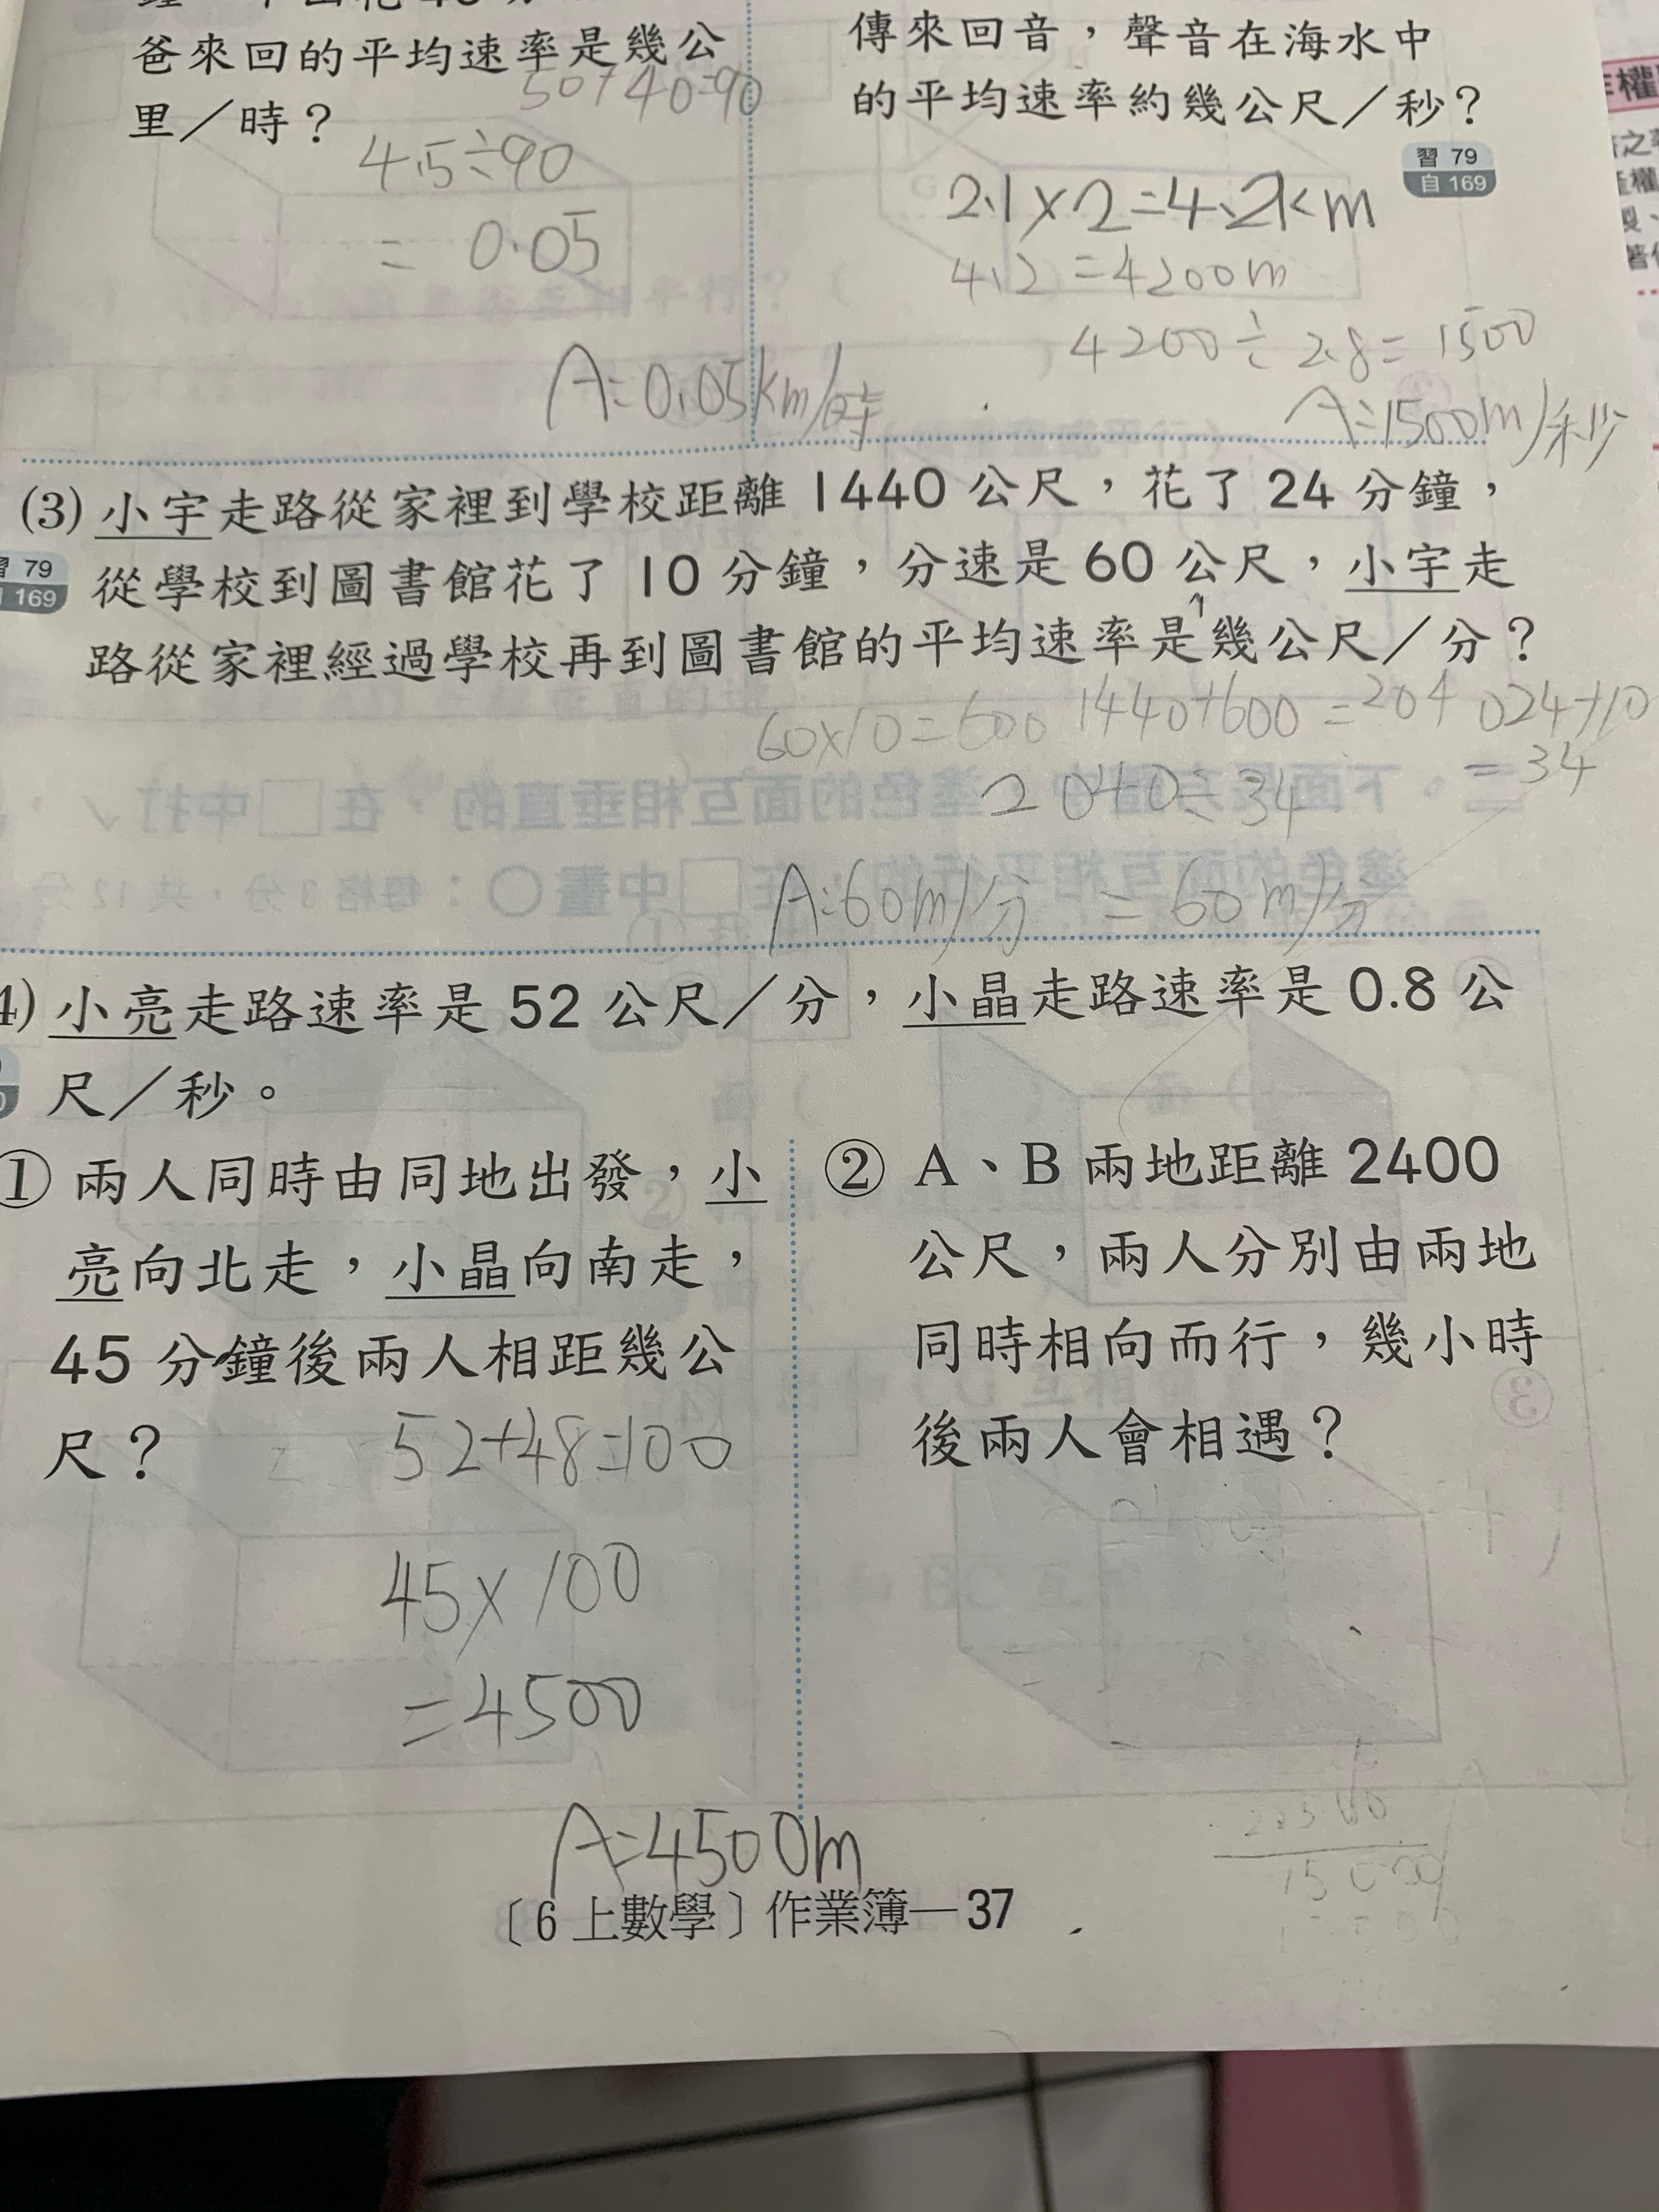 爸來回的平均速率是幾公
里／時？
50+40=90
4.5÷90
=0.05
A:0.05km/時
傳來回音，聲音在海水中
的平均速率約幾公尺／秒？
習 79
自 169
2.1×2=4.2km
4.2=4200m
4200÷2.8=1500
A:1500m/秒
(3) 小宇走路從家裡到學校距離 1440 公尺，花了 24 分鐘，
79
169
從學校到圖書館花了 10 分鐘，分速是 60 公尺，小宇走
路從家裡經過學校再到圖書館的平均速率是幾公尺／分？
60×10=600 1440+600=2040 24+10
=34
2040÷34
A:60m/分 =60m/分
4) 小亮走路速率是 52 公尺／分，小晶走路速率是 0.8 公
尺／秒。
① 兩人同時由同地出發，小
亮向北走，小晶向南走，
45 分鐘後兩人相距幾公
尺？
52+48=100
45×100
=4500
A:4500m
② A、B 兩地距離 2400
公尺，兩人分別由兩地
同時相向而行，幾小時
後兩人會相遇？
〔6 上數學〕作業簿—37